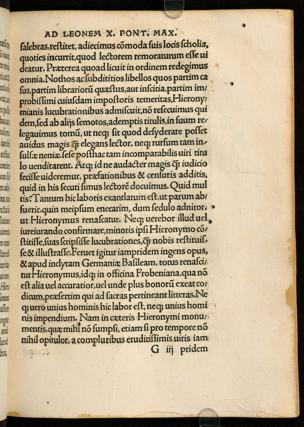 AD LEONEM X. PONT. MAX.
salebras, restitet, adiecimus cōmoda suis locis scholia,
quoties incurrit, quod lectorem remoraturum esse ui
deatur. Præterea quoad licuit in ordinem redegimus
omnia. Nothos ac subdititios libellos quos partim ca
sus, partim librariorū quæstus, aut inscitia, partim im/
probissimi cuiusdam impostoris temeritas, Hierony/
mianis lucubrationibus admiscuit, nō resecuimus qui
dem, sed ab alijs semotos, ademptis titulis, in suum re
legauimus tomū, ut neq; sit quod desyderare posset
auidus magis q̄ elegans lector, neq; rursum tam in/
sulsæ neniæ, sese posthac tam incomparabilis uiri titu
lo uenditarent. Atq; id ne audacter magis q̄ iudicio
fecisse uideremur, præfationibus & censuris additis,
quid in his secuti simus lectorē docuimus. Quid mul
tis? Tantum hic laboris exantlatum est, ut parum ab/
fuerit, quin meipsum enecarim, dum sedulo adnitor,
ut Hieronymus renascatur. Neq; uerebor illud uel
iureiurando confirmare, minoris ipsi Hieronymo cō/
stitisse, suas scripsisse lucubrationes, q̄ nobis restituis/
se & illustrasse. Feruet igitur iampridem ingens opus,
& apud inclytam Germaniæ Basileam, totus renasci/
tur Hieronymus, idq; in officina Frobeniana, qua nō
est alia uel accuratior, uel unde plus bonorū exeat co/
dicum, præsertim qui ad sacras pertineant litteras. Ne
q; uero unius hominis hic labor est, neq; unius homi
nis impendium. Nam in cæteris Hieronymi monu/
mentis, quæ mihi nō sumpsi, etiam si pro tempore nō
nihil opitulor, a compluribus eruditissimis uiris iam
G iij pridem